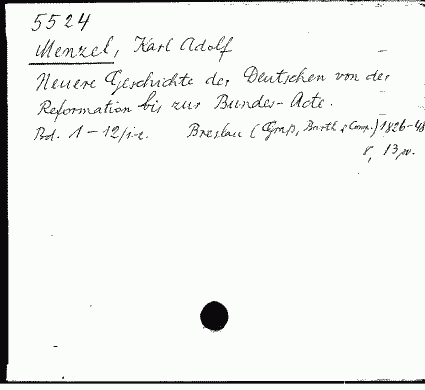 5524
Menzel, Karl Adolf
Neuere Geschichte der Deutschen von der
Reformation bis zur Bundes-Acte.
Bd. 1-12/i.e. Breslau (Graß, Barth & Comp.) 1826-48
8,